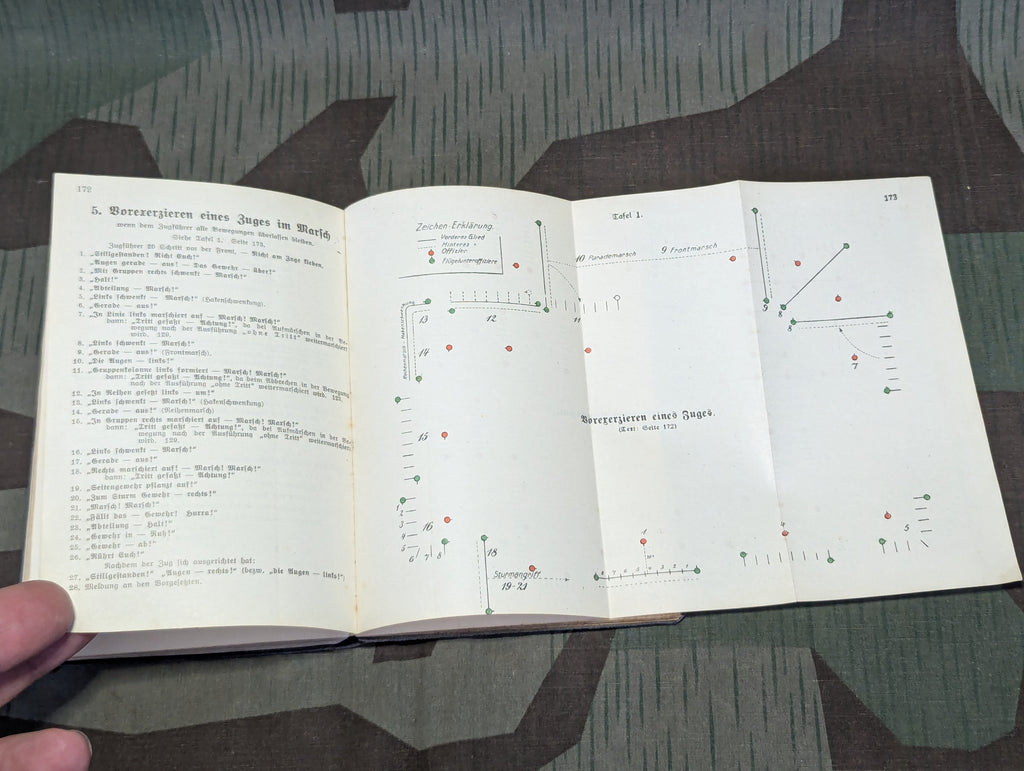 172
5. Vorexerzieren eines Zuges im Marsch
wenn dem Zugführer alle Bewegungen überlassen bleiben.
Siehe Tafel 1. Seite 173.
Zugführer 20 Schritt vor der Front. — Nicht am Zuge kleben.
1. „Stillgestanden! Richt Euch!"
„Augen gerade — aus! — Das Gewehr — über!"
2. „Mit Gruppen rechts schwenkt — Marsch!"
3. „Halt!"
4. „Abteilung — Marsch!"
5. „Links schwenkt — Marsch!" (Hakenschwenkung).
6. „Gerade — aus!"
7. „In Linie links marschiert auf — Marsch! Marsch!"
dann: „Tritt gefaßt — Achtung!", da bei Aufmärschen in der Bewegung nach der Ausführung „ohne Tritt" weitermarschiert
wird. 129.
8. „Links schwenkt — Marsch!"
9. „Gerade — aus!" (Frontmarsch).
10. „Die Augen — links!"
11. „Gruppenkolonne links formiert — Marsch! Marsch!"
dann: „Tritt gefaßt — Achtung!", da beim Abbrechen in der Bewegung
nach der Ausführung „ohne Tritt" weitermarschiert wird. 123.
12. „In Reihen gesetzt links — um!"
13. „Links schwenkt — Marsch!" (Hakenschwenkung)
14. „Gerade — aus!" (Reihenmarsch)
15. „In Gruppen rechts marschiert auf — Marsch! Marsch!"
dann: „Tritt gefaßt — Achtung!", da bei Aufmärschen in der Be-
wegung nach der Ausführung „ohne Tritt" weitermarschiert
wird. 129.
16. „Links schwenkt — Marsch!"
17. „Gerade — aus!"
18. „Rechts marschiert auf! — Marsch! Marsch!"
dann: „Tritt gefaßt — Achtung!"
19. „Seitengewehr pflanzt auf!"
20. „Zum Sturm Gewehr — rechts!"
21. „Marsch! Marsch!"
22. „Fällt das — Gewehr! Hurra!"
23. „Abteilung — Halt!"
24. „Gewehr in — Ruh!"
25. „Gewehr — ab!"
26. „Rührt Euch!"
Nachdem der Zug sich ausgerichtet hat:
27. „Stillgestanden!" „Augen — rechts!" (bezw. „die Augen — links!")
28. Meldung an den Vorgesetzten.
173
Tafel 1.
Zeichen-Erklärung.
Vorderes Glied
Hinteres "
Offizier
Flügelunteroffiziere
10 Paradermarsch
9 Frontmarsch
9
8
8
7
11
12
13
14
15
Vorexerzieren eines Zuges.
(Text: Seite 172)
1
2
3
4
5
6
7
8
16
18
Sturmangriff
19-21
1
8 7 6 5 4 3 2 1
4
5